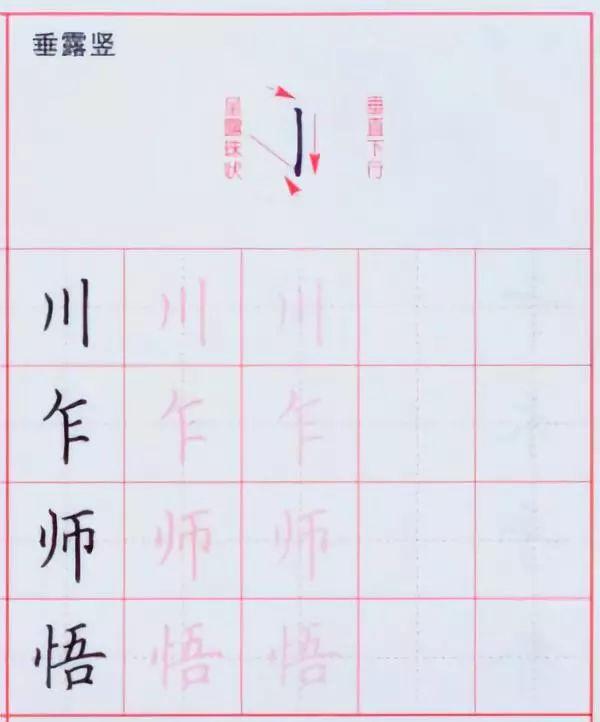 垂露竖
呈露珠状
垂直下行
川 川 川
乍 乍 乍
师 师 师
悟 悟 悟